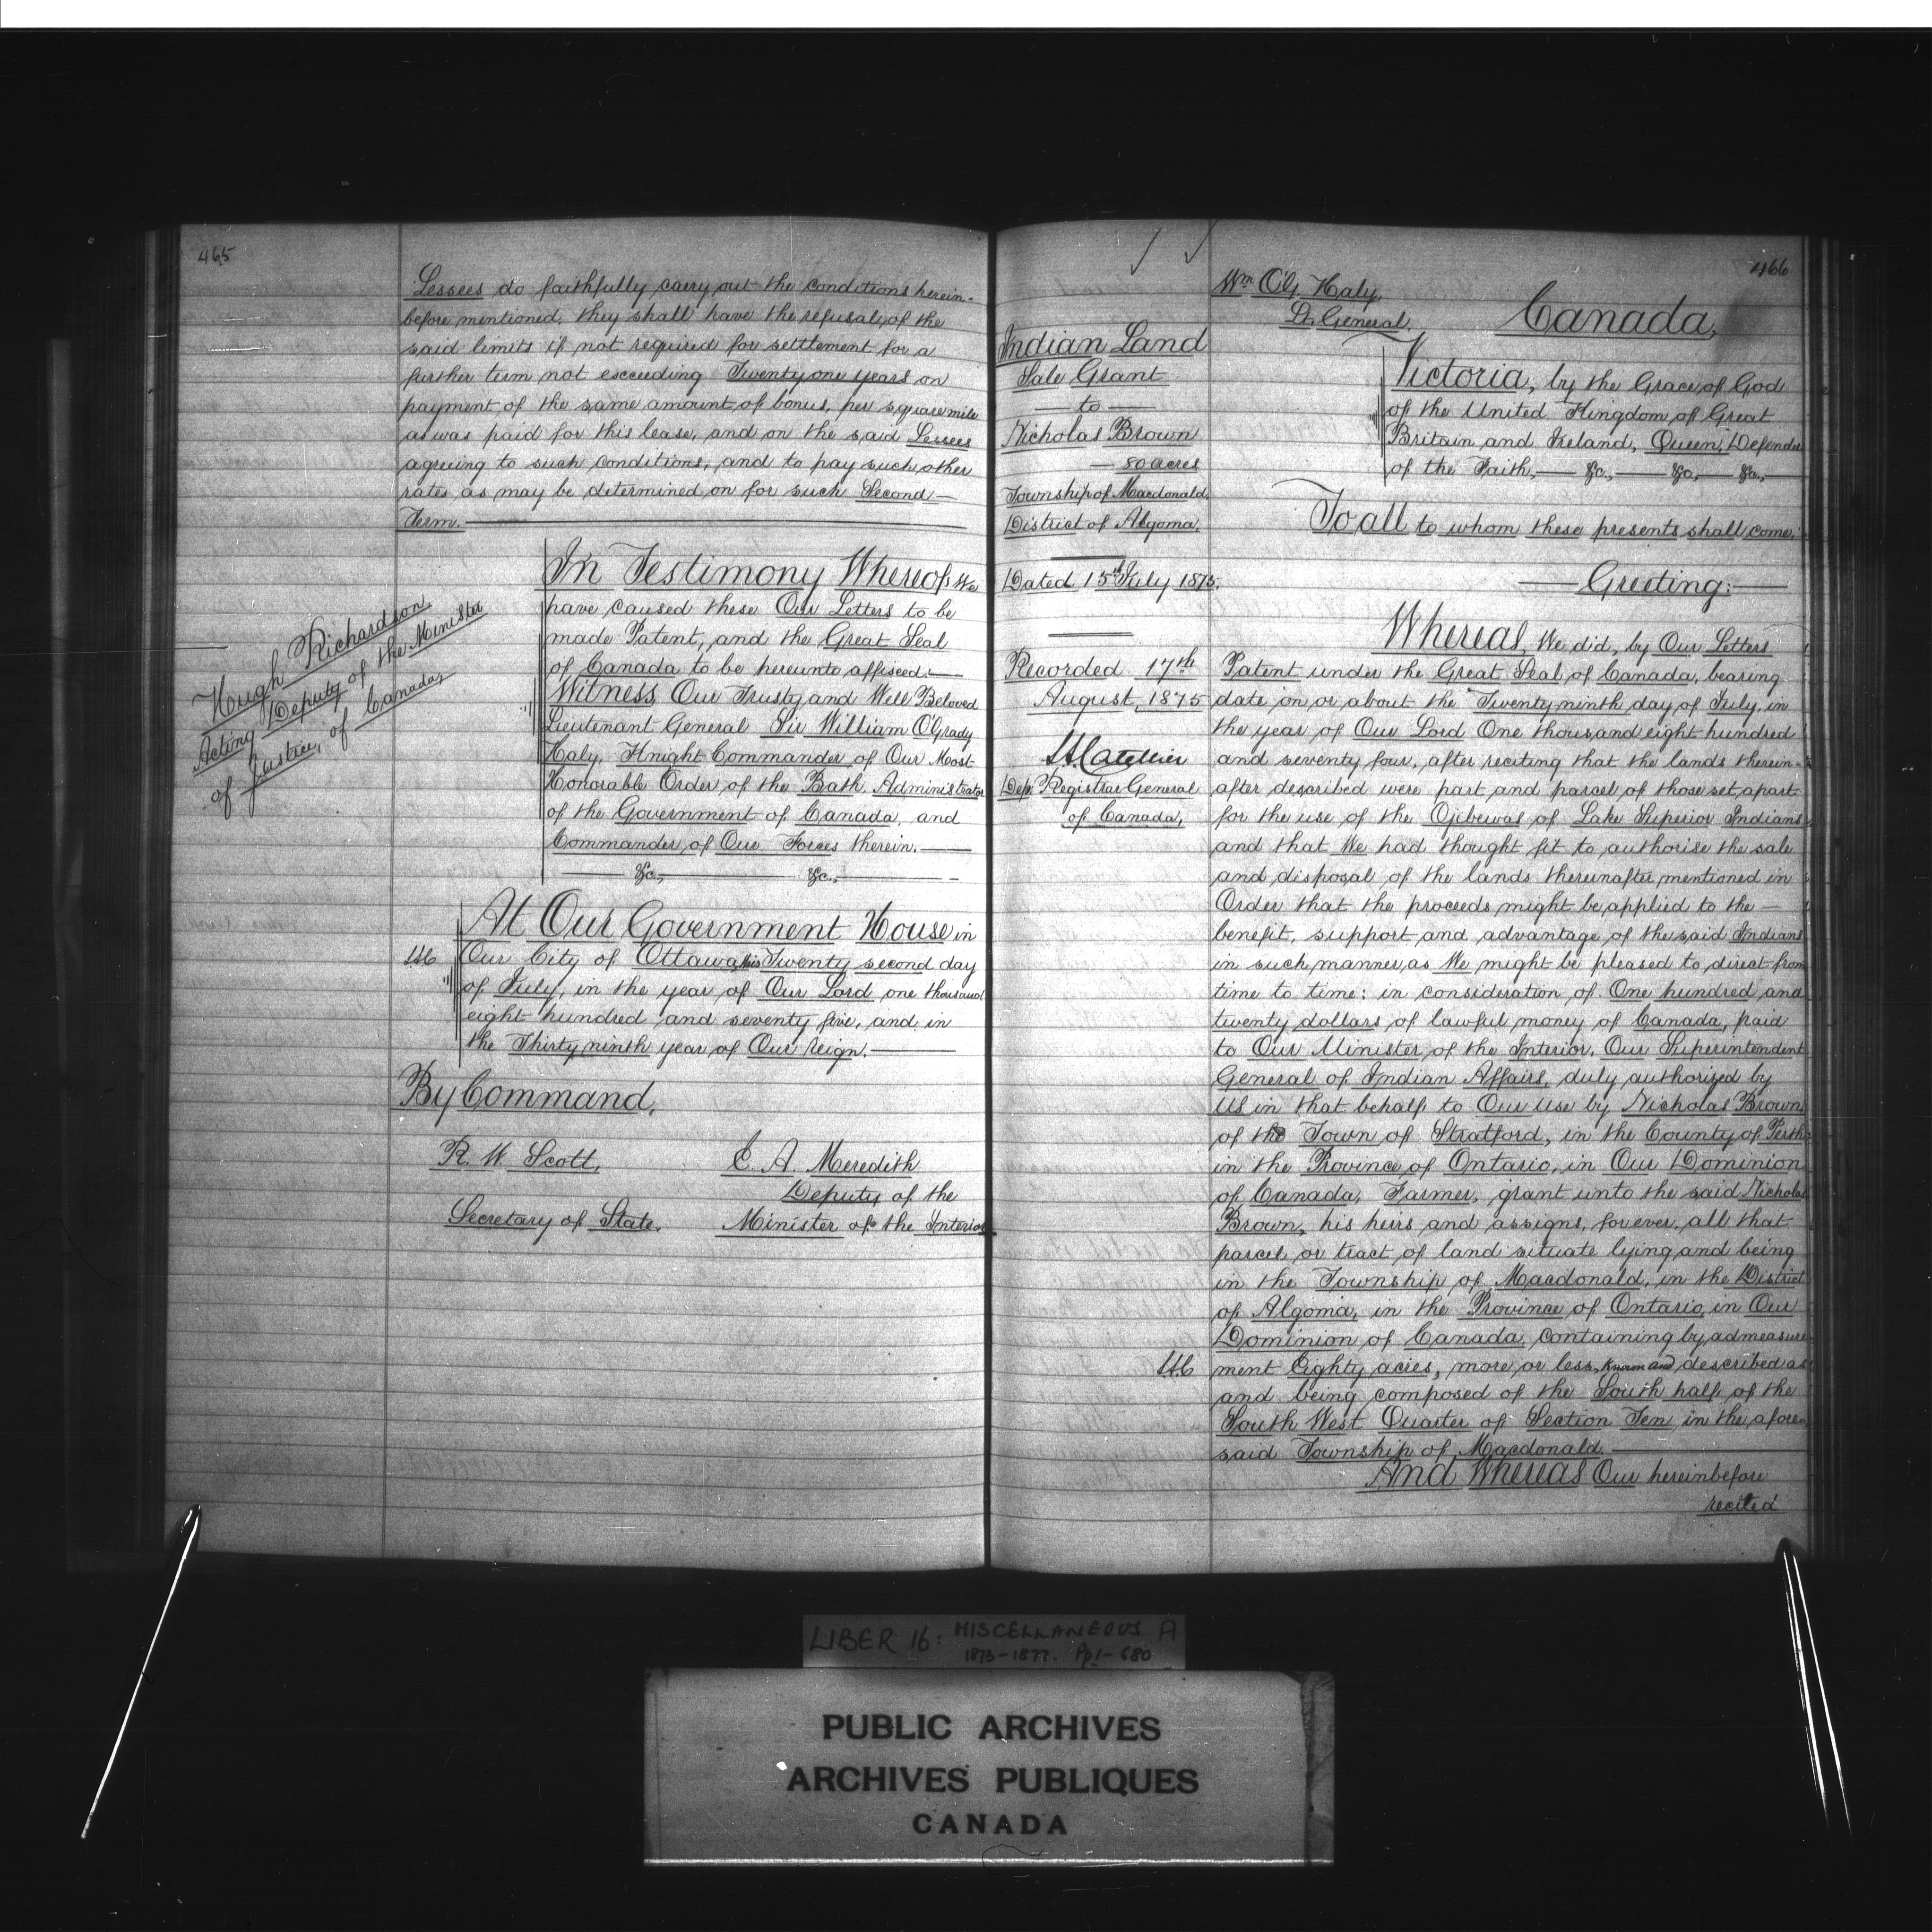 465
Lessees do faithfully carry out the conditions herein-
before mentioned, they shall have the refusal, of the
said limits if not required for settlement for a
further term not exceeding Twenty one years on
payment, of the same amount, of bonus, per square mile
as was paid for this lease, and on the said Lessees
agreeing to such conditions, and to pay such other
rates as may be determined on for such Second —
Term. —
In Testimony Whereof, We
have caused these Our Letters to be
made Patent, and the Great Seal
of Canada to be hereunto affixed: —
Witness, Our Trusty and Well Beloved
Lieutenant General Sir William O'Grady
Haly, Knight Commander of Our Most
Honorable Order of the Bath, Administrator
of the Government of Canada, and
Commander, of Our Forces therein. —
— &c., — &c., —
Hugh Richardson
Acting Deputy of the Minister
of Justice, of Canada,
At Our Government House in
Our City of Ottawa, this Twenty second day
of July, in the year of Our Lord one thousand
eight hundred and seventy five, and in
the Thirty ninth year of Our reign. —
By Command,
R. W. Scott,
Secretary of State.
E. A. Meredith
Deputy of the
Minister of the Interior
466
Wm O'G. Haly,
Lt. General.
Canada,
Indian Land
Sale Grant
— to —
Nicholas Brown
— 80 acres
Township of Macdonald,
District of Algoma,
Dated 15th July 1875.
Recorded 17th
August, 1875
Dep. Registrar General
of Canada,
Victoria, by the Grace of God
of the United Kingdom, of Great
Britain and Ireland, Queen, Defender
of the Faith, — &c., — &c., — &c., —
To all to whom these presents shall come,
— Greeting: —
Whereas, We did, by Our Letters
Patent under the Great Seal, of Canada, bearing
date on or about the Twenty ninth day of July, in
the year of Our Lord One thousand eight hundred
and seventy four, after reciting that the lands therein-
after described were part and parcel of those set, apart
for the use of the Ojibewas of Lake Superior Indians
and that We had thought fit to authorise the sale
and disposal of the lands thereinafter mentioned in
Order that the proceeds might be applied to the —
benefit, support and advantage of the said Indians
in such manner, as We might be pleased to direct from
time to time: in consideration of One hundred and
twenty dollars of lawful money of Canada, paid
to Our Minister, of the Interior, Our Superintendent
General of Indian Affairs, duly authorized by
us in that behalf, to Our use by Nicholas Brown
of the Town of Stratford, in the County of Perth
in the Province of Ontario, in Our Dominion
of Canada, Farmer, grant unto the said Nicholas
Brown, his heirs and assigns, for ever, all that
parcel or tract of land situate lying and being
in the Township of Macdonald, in the District
of Algoma, in the Province of Ontario, in Our
Dominion of Canada, containing by, admeasure
ment Eighty acres, more, or less, known and described as
and being composed of the South half of the
South West Quarter of Section Ten in the afore-
said Township of Macdonald. —
And Whereas Our hereinbefore
recited
LIBER 16: MISCELLANEOUS A
1873-1877. Pp1-680
PUBLIC ARCHIVES
ARCHIVES PUBLIQUES
CANADA